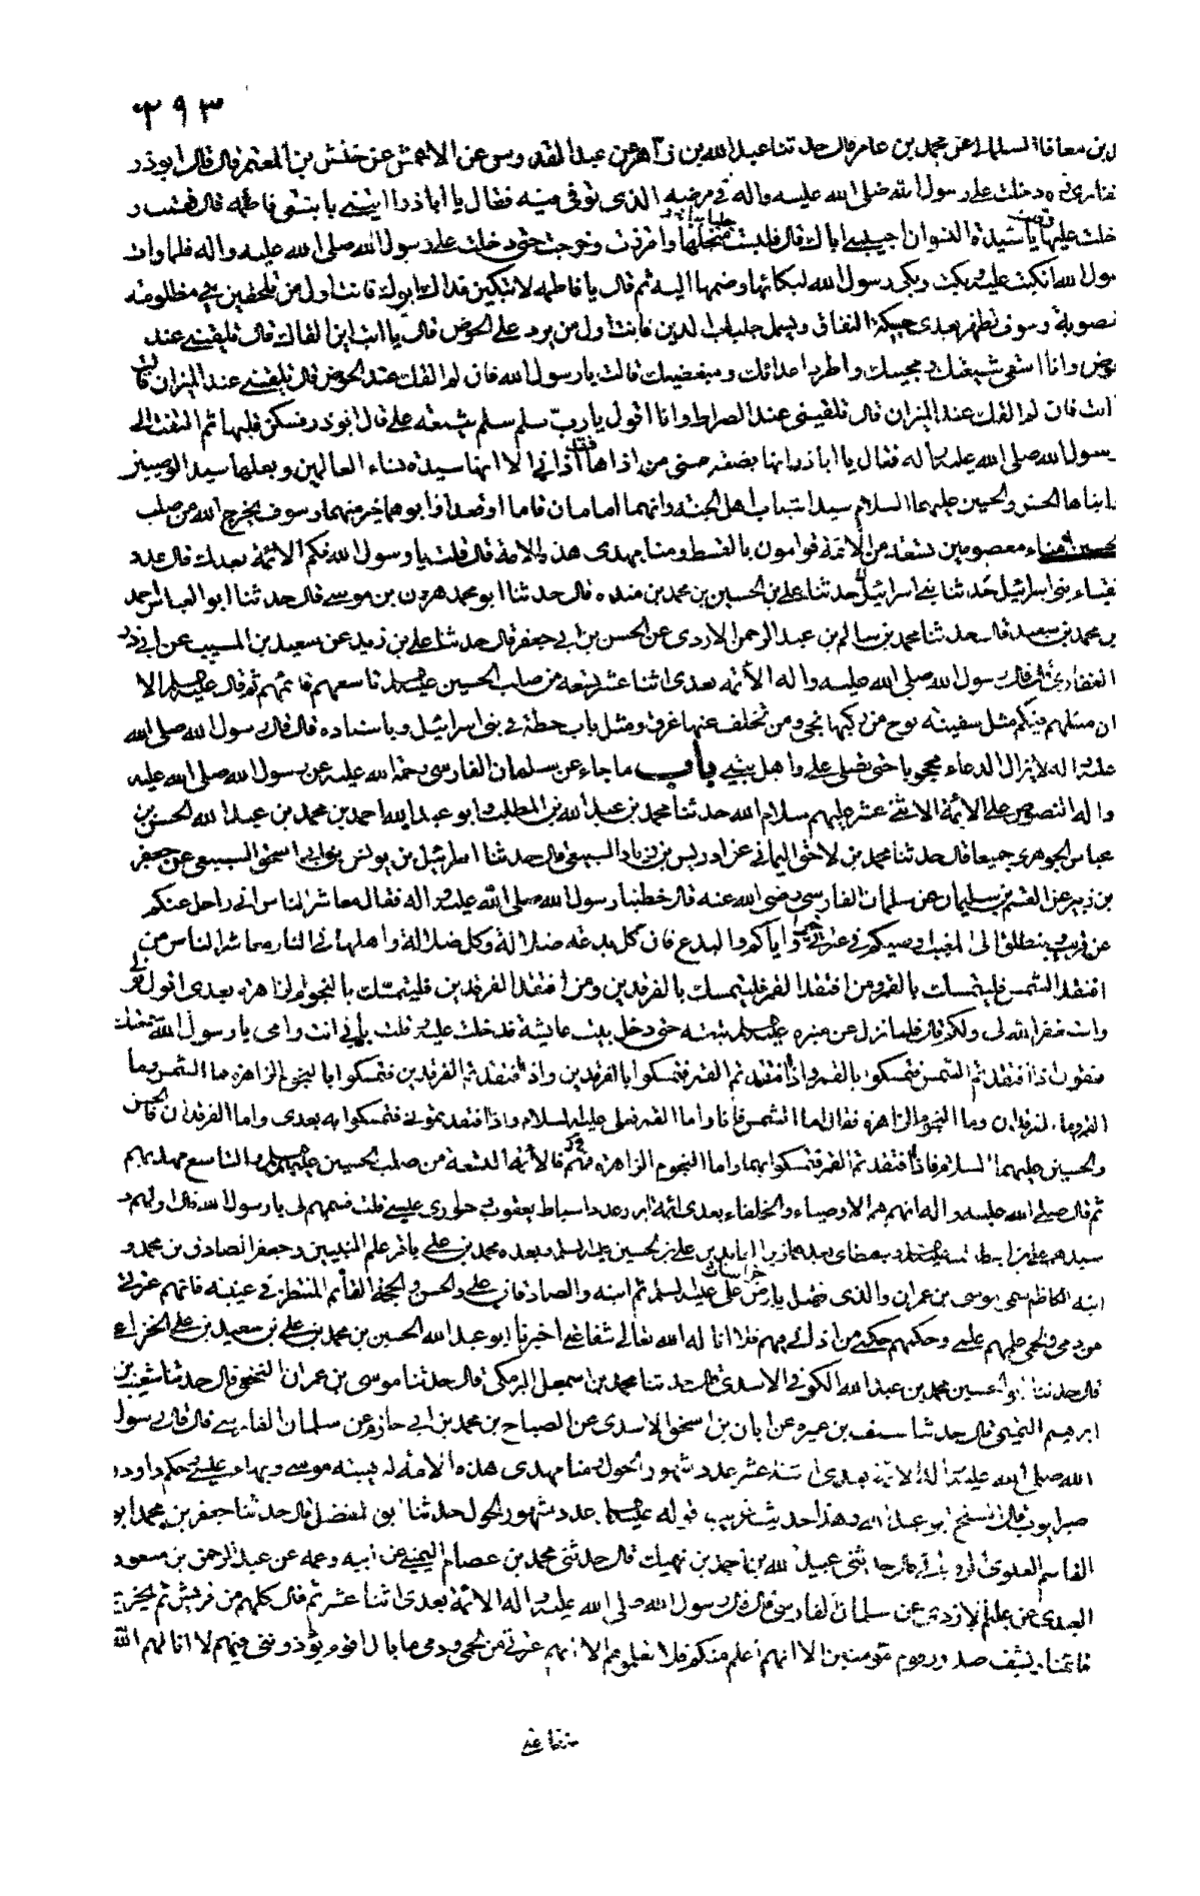 ٢٩٣
بن معافا السلماني عن محمد بن عامر قال حدثنا عبد الله بن زاهر عن عبد القدوس عن الاعمش عن حنش بن المعتمر قال قال ابوذر
الغفاري ره دخلت على رسول الله صلى الله عليه واله في مرضه الذي توفى فيه فقال يا اباذر ايتني بابنتي فاطمه قال فقمت و
دخلت عليها وقلت يا سيدة النسوان اجيبي اباك قال فلبست جلبابها واتزرت وخرجت حتى دخلت على رسول الله صلى الله عليه واله فلما رات
رسول الله انكبت عليه وبكت وبكى رسول الله لبكائها وضمها اليه ثم قال يا فاطمه لا تبكين فداك ابوك فانت اول من تلحقين بي مظلومة
مغصوبة وسوف تظهر بعدي حسيكة النفاق ويسمل جلباب الدين فانت اول من يرد على الحوض قالت يا ابت اين القاك قال تلقيني عند
الحوض وانا اسقى شيعتك ومحبيك واطرد اعدائك ومبغضيك قالت يا رسول الله فان لم القك عند الحوض قال تلقيني عند الميزان قالت
يا ابت فان لم القك عند الميزان قال تلقيني عند الصراط وانا اقول يا رب سلم سلم شيعة علي قال ابوذر فسكن قلبها ثم التفت الى
رسول الله صلى الله عليه واله فقال يا اباذر انها بضعة مني من اذاها فقد آذاني الا انها سيدة نساء العالمين وبعلها سيد الوصيين
وابناها الحسن والحسين عليهما السلام سيدا شباب اهل الجنة وانهما امامان قاما او قعدا وابوهما خير منهما وسوف يخرج الله من صلب
الحسين امناء معصومين تسعة من الائمة قوامون بالقسط ومنا مهدي هذه الامة قال قلت يا رسول الله فكم الائمة بعدك قال عدد
نقباء بني اسرائيل حدثنا علي بن الحسين بن محمد بن منده قال حدثنا ابو محمد هرون بن موسى قال حدثنا ابو العباس احمد
بن محمد بن سعيد قال حدثنا محمد بن سالم بن عبد الرحمن الازدي عن الحسن بن ابي جعفر قال حدثنا علي بن زيد عن سعيد بن المسيب عن ابي ذر
الغفاري قال قال رسول الله صلى الله عليه واله الائمة بعدي اثنا عشر تسعة من صلب الحسين عليه السلم تاسعهم قائمهم ثم قال عليه السلم الا
ان مثلهم فيكم مثل سفينة نوح من ركبها نجى ومن تخلف عنها غرق ومثل باب حطة في بني اسرائيل وباسناده قال قال رسول الله صلى الله
عليه واله لا يزال الدعاء محجوبا حتى يصلى علي واهل بيتي باب ما جاء عن سلمان الفارسي رحمة الله عليه عن رسول الله صلى الله عليه
واله النصوص على الائمة الاثنى عشر عليهم سلام الله حدثنا محمد بن عبد الله بن المطلب وابو عبد الله احمد بن محمد بن عبد الله الحسن بن
عباس الجوهري جميعا قال حدثنا محمد بن لاحق اليماني عن ادريس بن زياد السبيعي قال حدثنا اسرائيل بن يونس بن ابي اسحق السبيعي عن جعفر
بن زبير عن القسم بن سليمان عن سلمان الفارسي رضي الله عنه قال خطبنا رسول الله صلى الله عليه واله فقال معاشر الناس اني راحل عنكم
عن قريب ومنطلق الى المغيب اوصيكم في عترتي خيرا واياكم والبدع فان كل بدعة ضلالة وكل ضلالة واهلها في النار معاشر الناس من
افتقد الشمس فليتمسك بالقمر ومن افتقد القمر فليتمسك بالفرقدين ومن افتقد الفرقدين فليتمسك بالنجوم الزاهرة بعدي اقول قولي
واستغفر الله لي ولكم قال فلما نزل عن منبره عليه السلم تبعته حتى دخل بيت عايشة فدخلت عليه قلت بابي انت وامي يا رسول الله سمعتك
تقول اذا افتقدتم الشمس فتمسكوا بالقمر واذا افتقدتم القمر فتمسكوا بالفرقدين واذا افتقدتم الفرقدين فتمسكوا بالنجوم الزاهرة ما الشمس وما
القمر وما الفرقدان وما النجوم الزاهرة فقال اما الشمس فانا واما القمر فعلي عليه السلام واذا افتقدتموني فتمسكوا به بعدي واما الفرقدان فالحسن
والحسين عليهما السلام فاذا افتقدتم القمر فتمسكوا بهما واما النجوم الزاهرة فهم الائمة التسعة من صلب الحسين عليهم السلم والتاسع مهديهم
ثم قال صلى الله عليه واله انهم هم الاوصياء والخلفاء بعدي ائمة ابرار عدد اسباط يعقوب وحواري عيسى قلت فسمهم لي يا رسول الله قال اولهم و
سيدهم علي بن ابيطالب وسبطاي بعدهما زين العابدين علي بن الحسين عليه السلم وبعده محمد بن علي باقر علم النبيين وجعفر الصادق بن محمد و
ابنه الكاظم سمي موسى بن عمران والذي يقتل بارض خراسان علي عليه السلم ثم ابنه والصادقان علي والحسن والحجة القائم المنتظر في غيبته فانهم عترتي
من دمي ولحمي علمهم علمي وحكمهم حكمي من آذاني فيهم فلا اناله الله تعالى شفاعتي اخبرنا ابو عبد الله الحسين بن محمد بن علي بن سعيد بن علي الخزاعي
قال حدثنا ابو الحسين محمد بن عبد الله الكوفي الاسدي قال حدثنا محمد بن اسمعيل البرمكي قال حدثنا موسى بن عمران النخعي قال حدثنا شعيب بن
ابرهيم التميمي قال حدثنا سيف بن عميرة عن ابان بن اسحق الاسدي عن الصباح بن محمد بن ابي حازم عن سلمان الفارسي قال قال رسول
الله صلى الله عليه واله الائمة بعدي اثنا عشر عدد شهور الحول ومنا مهدي هذه الامة له هيبة موسى وبهاء عيسى وحكم داود و
صبر ايوب قال الشيخ ابو عبد الله وهذا حديث غريب قوله عليه السلم عدد شهور الحول حدثنا ابو المفضل قال حدثنا جعفر بن محمد ابو
القاسم العلوي قال حدثني عبيد الله بن احمد بن نهيك قال حدثني محمد بن عصام اليمني عن ابيه وعمه عن عبد الرحمن بن مسعود
العبدي عن عليم الازدي عن سلمان الفارسي قال قال رسول الله صلى الله عليه واله الائمة بعدي اثنا عشر ثم قال كلهم من قريش ثم يخرج
قائمنا يشفى صدور قوم مؤمنين الا انهم اعلم منكم فلا تعلموهم الا انهم عترتي من لحمي ودمي ما بال اقوام يؤذونني فيهم لا انالهم الله
شفاعتي